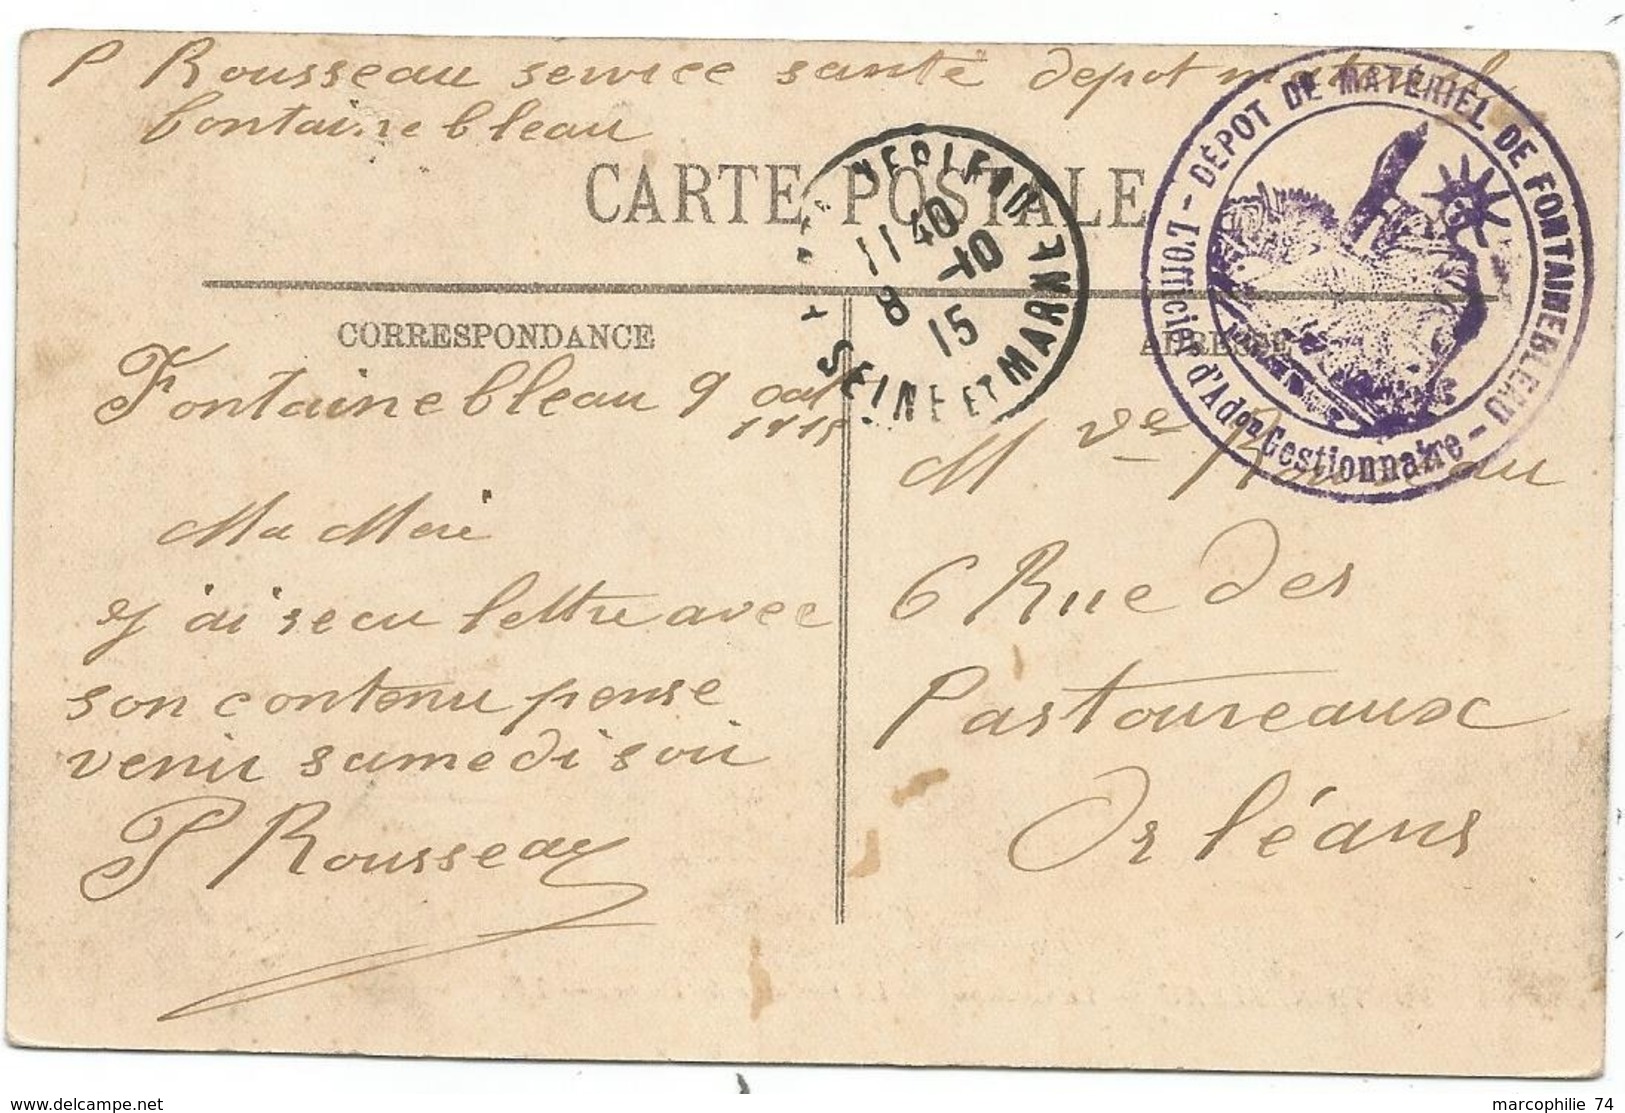 P Rousseau service santé depot materiel
fontainebleau
CARTE POSTALE
DÉPOT DE MATÉRIEL DE FONTAINEBLEAU
- L'Officier d'Adon Gestionnaire -
NEBLEAU
11 40
8 -10
15
SEINE ET MARNE
CORRESPONDANCE
ADRESSE
Fontainebleau 9 oct
1915
Ma Mere
J'ai recu lettre avec
son contenu pense
venir samedi soir
P Rousseau
M ve Rousseau
6 Rue des
Pastoureaux
Orléans
www.delcampe.net
marcophilie 74